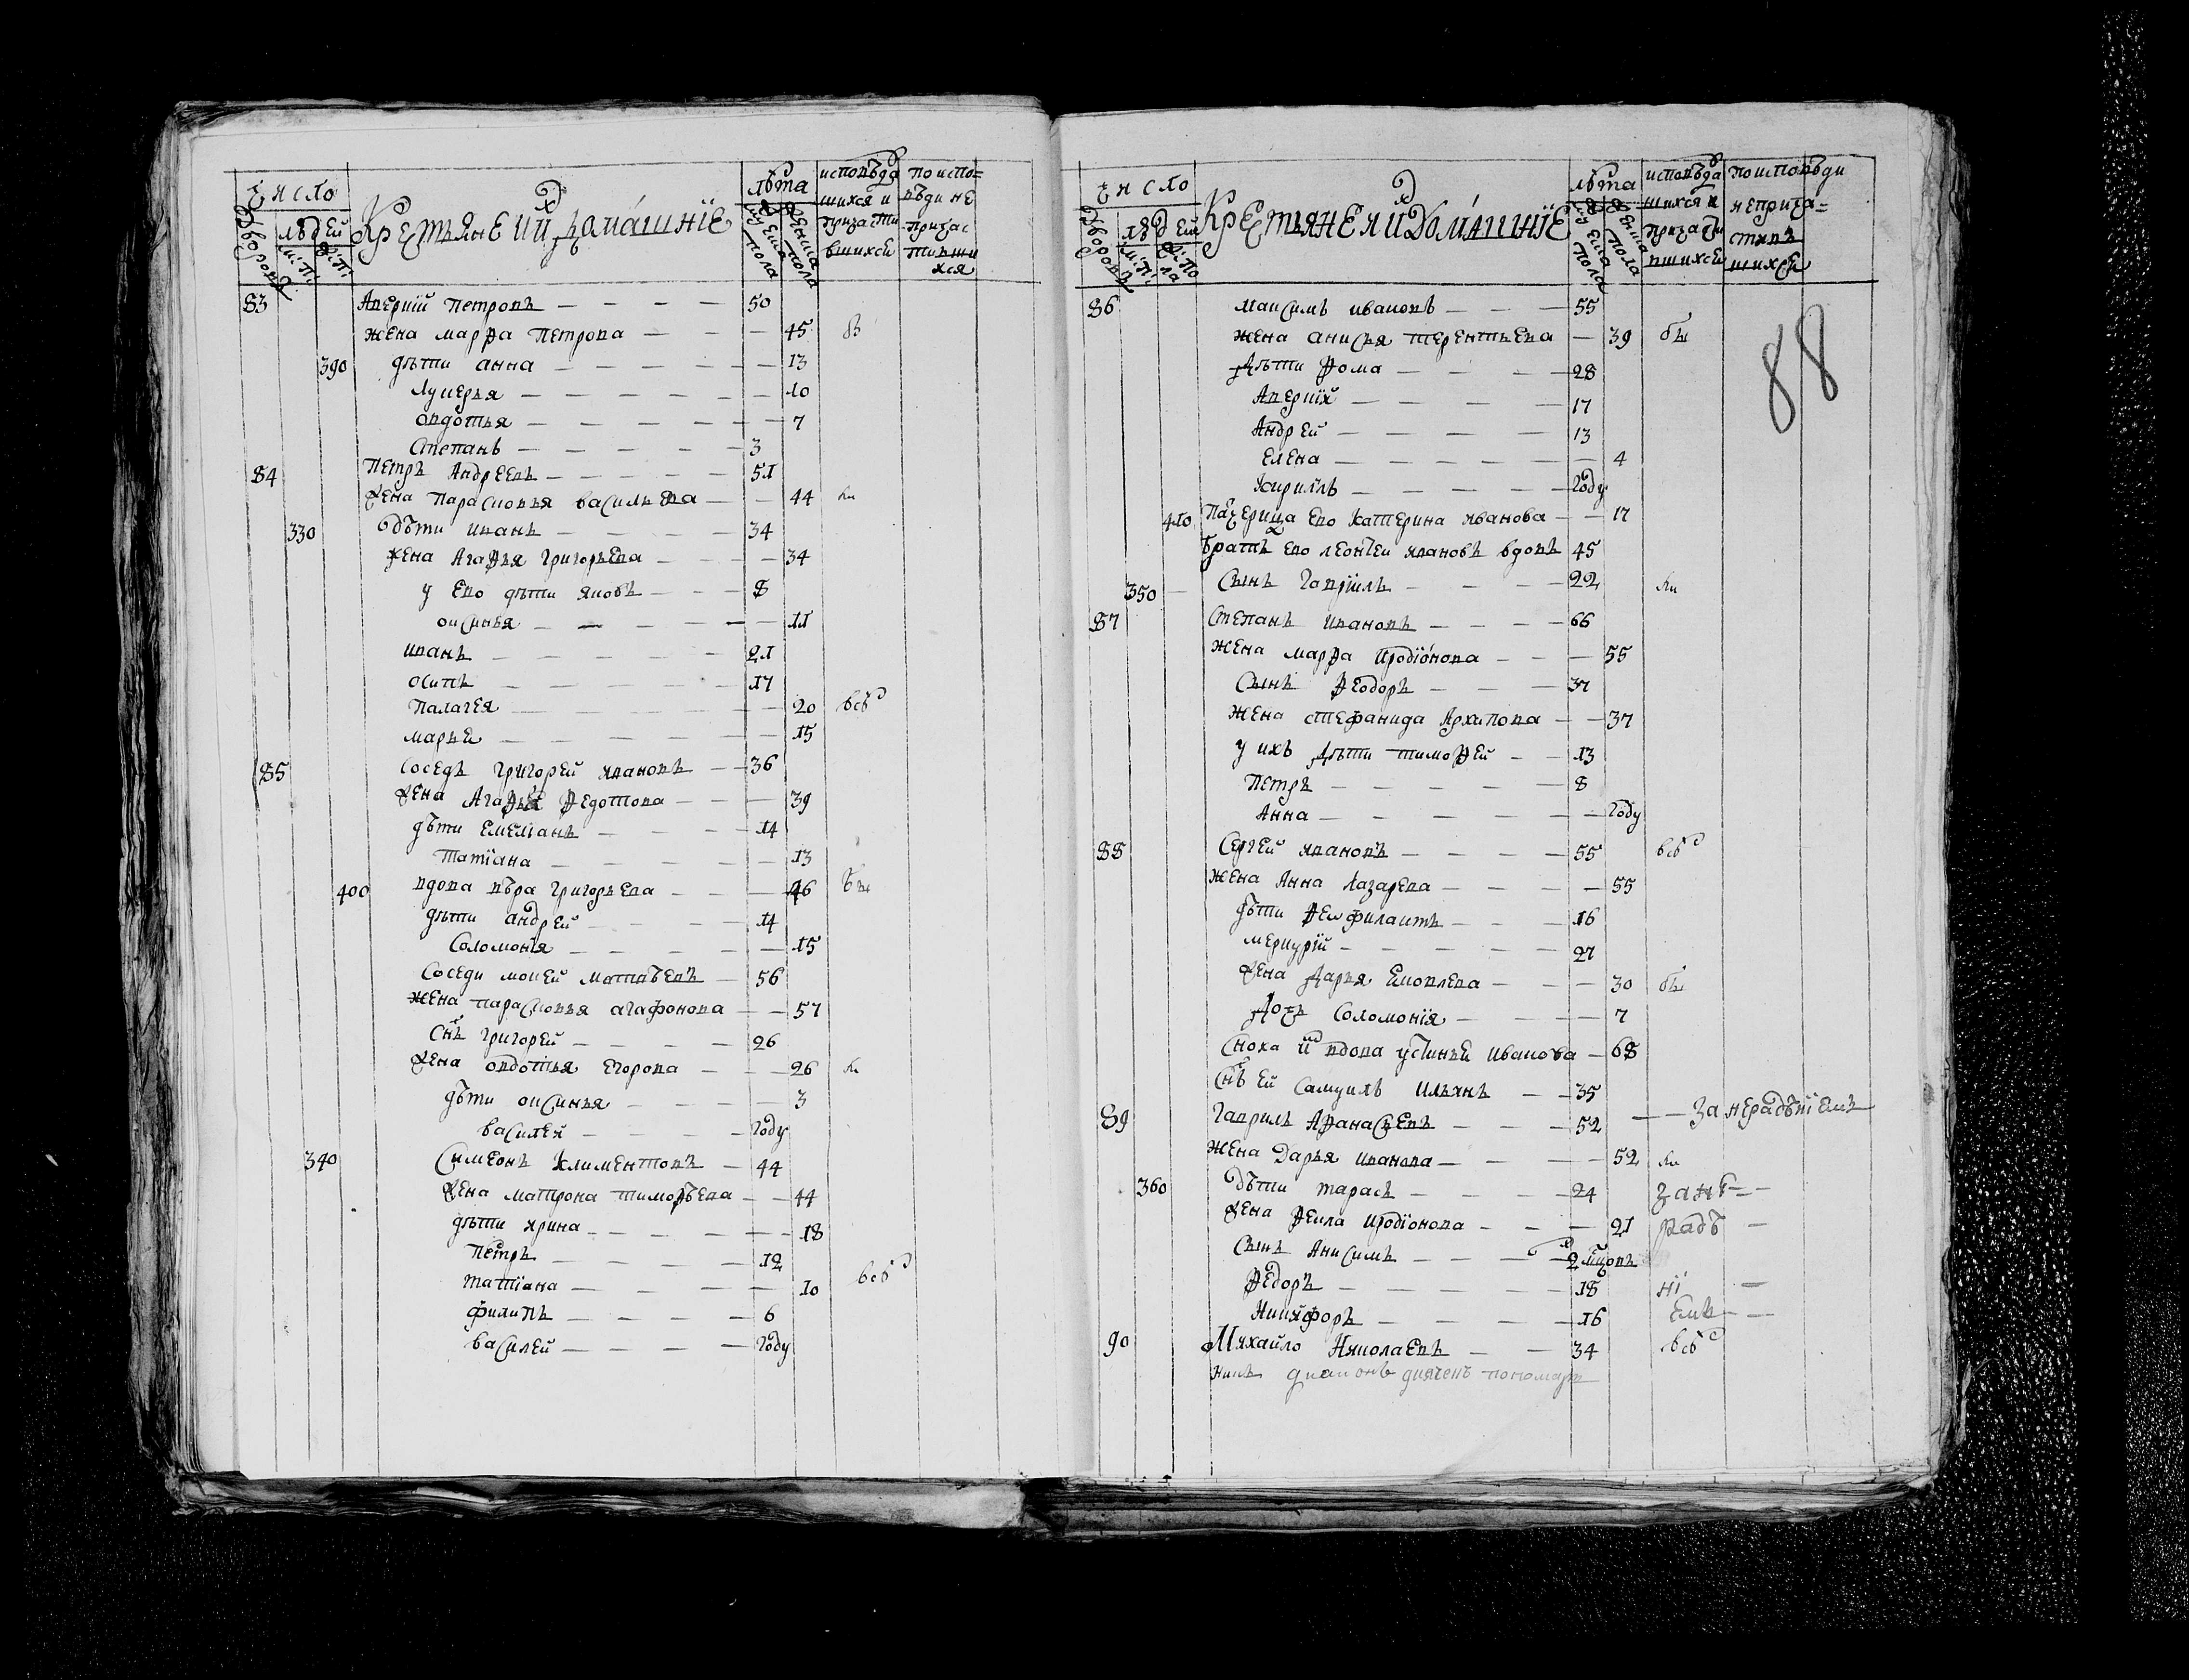 число
Кретьяне и ихъ домашнїе
лѣта
дворовъ
людей
м: п:
ж: п:
мужеска пола
женска пола
исповѣдавшихся и причастившихся
по исповѣди не причастившихся
83 Аверкїй Петровъ 50
жена марѳа Петрова 45
390 дѣти анна 13
Лукерья 10
овдотья 7
Степанъ 3
84 Петръ Андреевъ 51
жена Парасковья василева 44
330 дѣти иванъ 34
жена Агаѳья Григорьева 34
у ево дѣти яковъ 8
оксинья 11
иванъ 21
осипъ 17
Палагея 20 всѣ
марья 15
85 Соседъ Григорей ивановъ 36
жена Агаѳья Ѳедотова 39
дѣти Емелїанъ 14
Татїана 13
400 вдова вѣра Григорьева 46
дѣти андрей 14
Соломонїя 15
Соседи мокей матвѣевъ 56
жена парасковья агафонова 57
снъ григорей 26
жена овдотья Егорова 26
дѣти оксинья 3
василей году
340 Симеонъ Климентовъ 44
жена матрона тимоѳѣева 44
дѣти ярина 18
Петръ 12
татїана 10 всѣ
филипъ 6
василей году
число
Кретьяне и ихъ домашнїе
лѣта
дворовъ
людей
м: п:
ж: пола
мужеска пола
женска пола
исповѣдавшихся и причастившихся
по исповѣди не причастившихся
88
86 максимъ ивановъ 55
жена анисья терентьева 39
дѣти Ѳома 28
Аверкїй 17
Андрей 13
Елена 4
Кирилъ году
410 Падчерица ево катерина иванова 17
братъ ево леонтей ивановъ вдовъ 45
350 Сынъ Гаврїилъ 22
87 Степанъ ивановъ 66
жена марѳа иродїонова 55
Сынъ Ѳеодоръ 37
жена стефанида Архипова 37
у ихъ дѣти тимоѳей 13
Петръ 8
Анна году
88 Сергей ивановъ 55 всѣ
жена Анна лазарева 55
дѣти Ѳеофилактъ 16
меркурїй 27
жена дарья яковлева 30
дочь Соломонїя 7
Сноха и вдова устинья иванова 68
снъ ей Самуилъ ильинъ 35
89 Гаврилъ Аѳанасьевъ 52 за нерадѣнїемъ
жена дарья иванова 52
360 дѣти тарасъ 24 за не
жена Ѳекла иродїонова 21 радѣ
Сынъ Анисимъ 2 мцовъ
Ѳедоръ 18 нї
Никифоръ 16 емъ
90 Михайло Николаевъ 34 всѣ
диаконъ дьячекъ пономарь